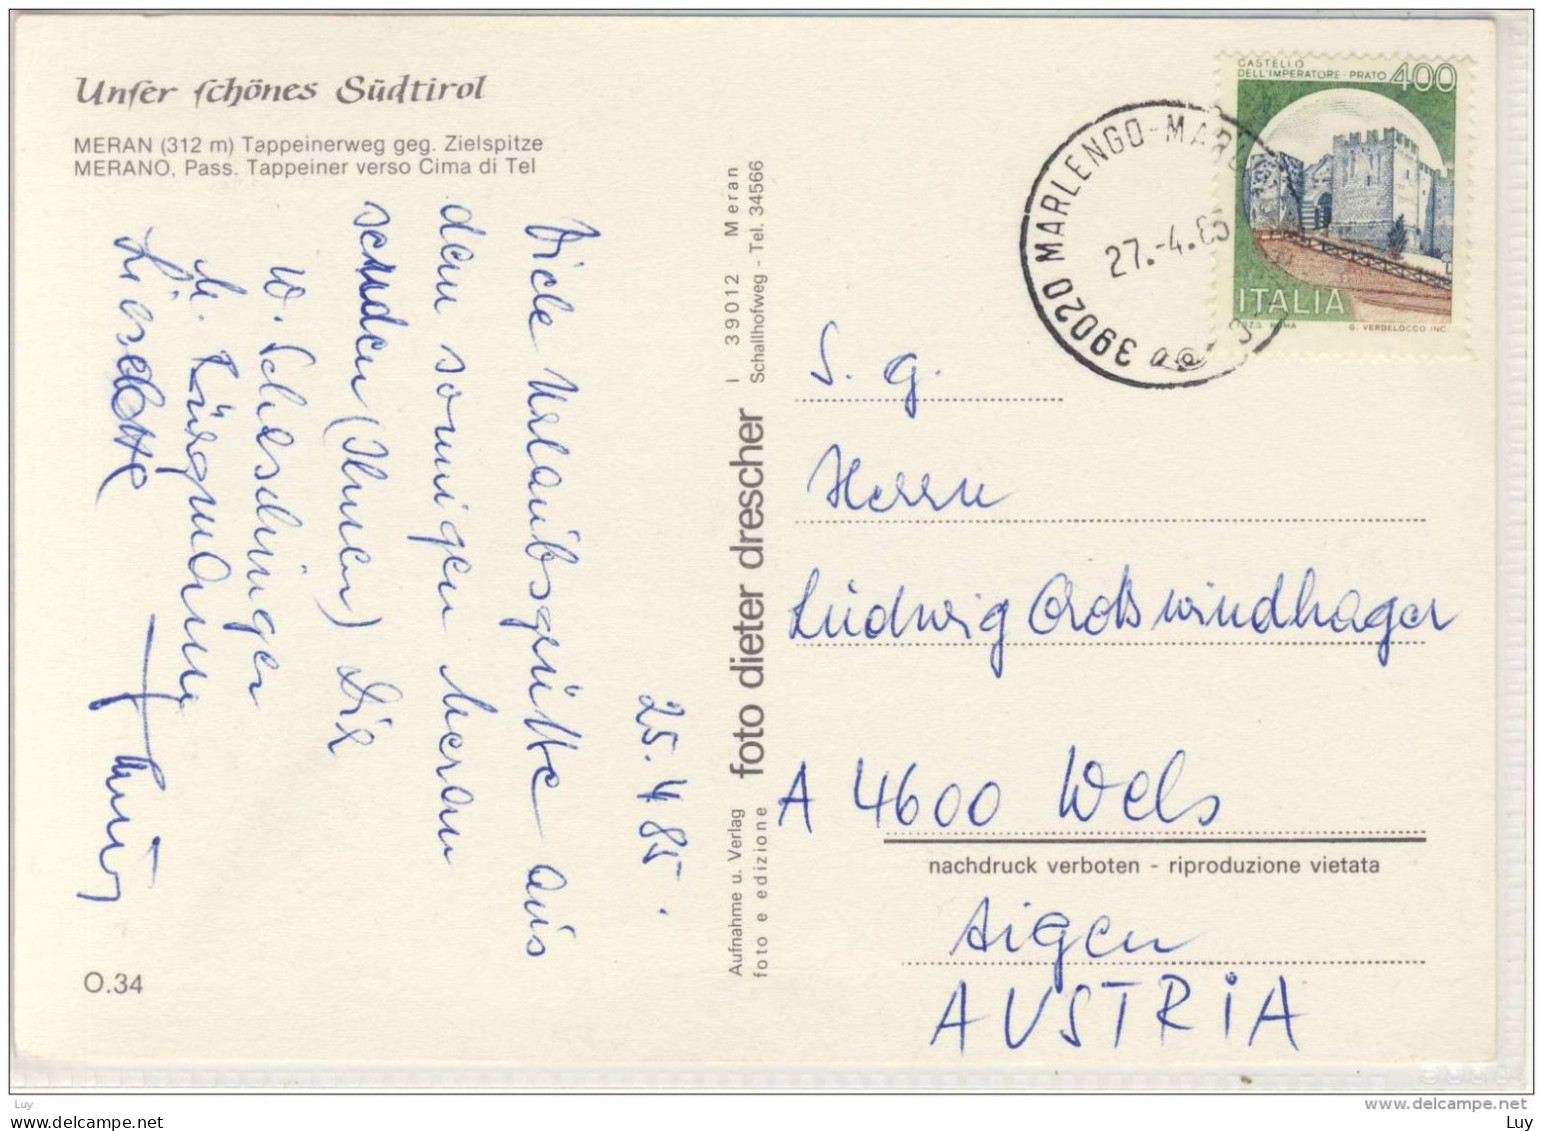 Unser schönes Südtirol
MERAN (312 m) Tappeinerweg geg. Zielspitze
MERANO, Pass. Tappeiner verso Cima di Tel
25.4.85.
Viele Urlaubsgrüße aus
dem sonnigen Meran
senden (Ihnen) Dir
W.
u.
Liselotte
O.34
Aufnahme u. Verlag foto dieter drescher I 39012 Meran
foto e edizione Schallhofweg - Tel. 34566
CASTELLO
DELL'IMPERATORE - PRATO 400
ITALIA
I.P.Z.S. ROMA G. VERDELOCCO INC.
39020 MARLENGO-MARL
27.-4.85
S. g.
Herrn
Ludwig
A 4600 Wels
nachdruck verboten - riproduzione vietata
Aigen
AUSTRIA
Luy
www.delcampe.net
www.delcampe.net
Luy